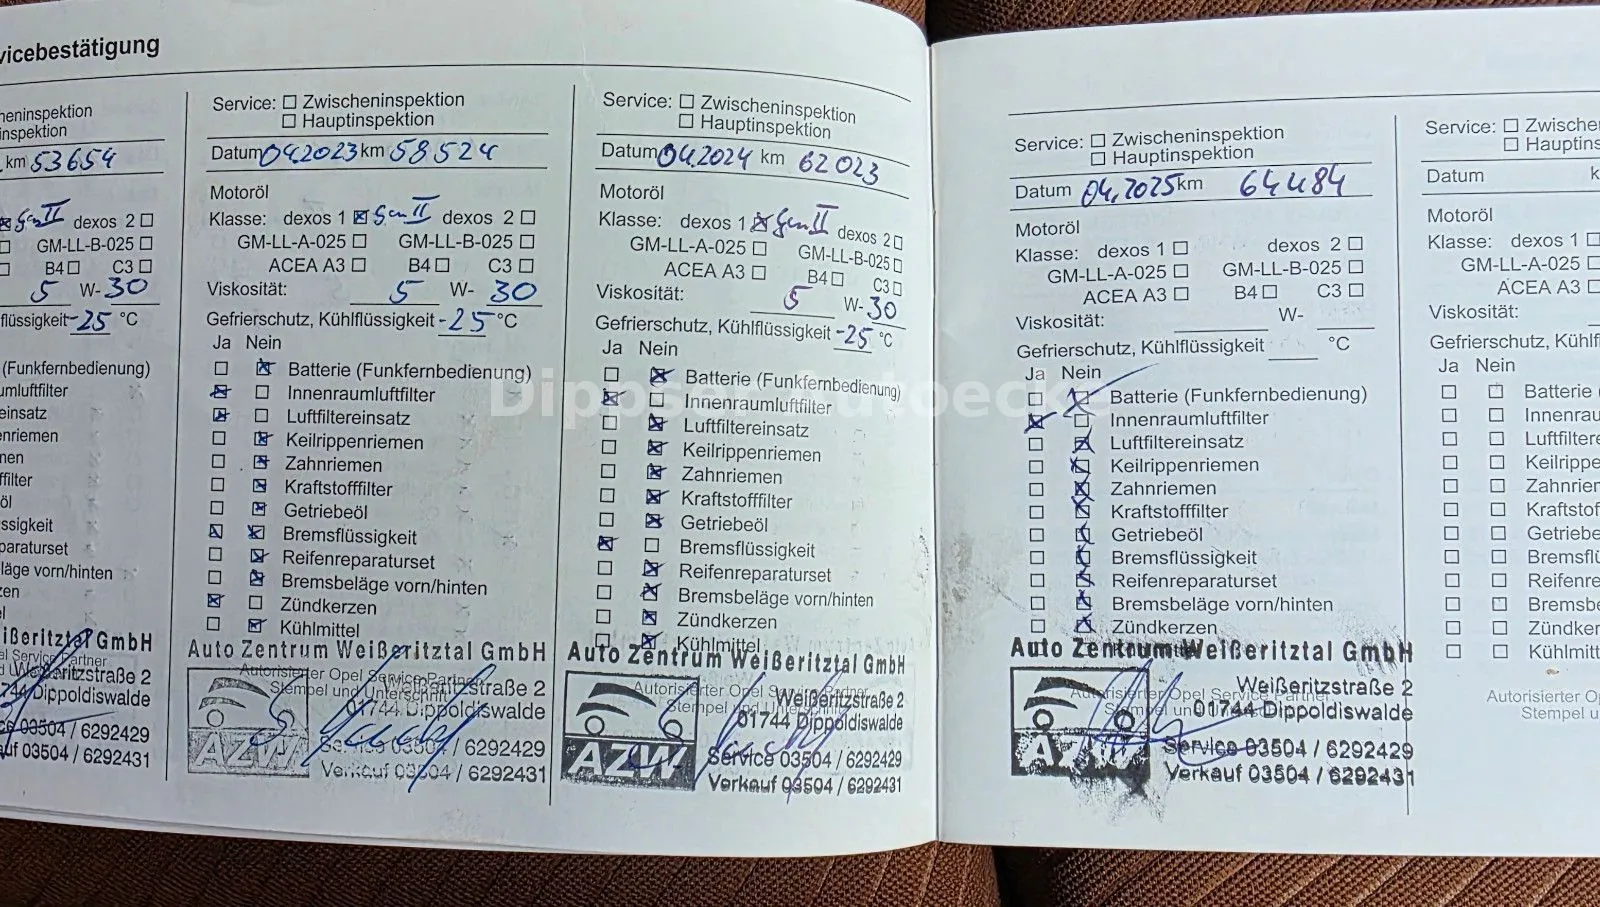 vicebestätigung
heninspektion
inspektion
km 53654
Gen II dexos 2
GM-LL-B-025
B4 C3
5 W- 30
flüssigkeit -25 °C
(Funkfernbedienung)
umluftfilter
einsatz
enriemen
men
filter
öl
ssigkeit
paraturset
läge vorn/hinten
zen
el
ißeritztal GmbH
el Service Partner
Weißeritzstraße 2
01744 Dippoldiswalde
ce 03504 / 6292429
auf 03504 / 6292431
Service: Zwischeninspektion
Hauptinspektion
Datum 04.2023 km 58524
Motoröl
Klasse: dexos 1 Gen II dexos 2
GM-LL-A-025 GM-LL-B-025
ACEA A3 B4 C3
Viskosität: 5 W- 30
Gefrierschutz, Kühlflüssigkeit -25 °C
Ja Nein
Batterie (Funkfernbedienung)
Innenraumluftfilter
Luftfiltereinsatz
Keilrippenriemen
Zahnriemen
Kraftstofffilter
Getriebeöl
Bremsflüssigkeit
Reifenreparaturset
Bremsbeläge vorn/hinten
Zündkerzen
Kühlmittel
Auto Zentrum Weißeritztal GmbH
Autorisierter Opel Service Partner
Stempel und Unterschrift
Weißeritzstraße 2
01744 Dippoldiswalde
AZW
Service 03504 / 6292429
Verkauf 03504 / 6292431
Service: Zwischeninspektion
Hauptinspektion
Datum 04.2024 km 62023
Motoröl
Klasse: dexos 1 Gen II dexos 2
GM-LL-A-025 GM-LL-B-025
ACEA A3 B4 C3
Viskosität: 5 W- 30
Gefrierschutz, Kühlflüssigkeit -25 °C
Ja Nein
Batterie (Funkfernbedienung)
Innenraumluftfilter
Luftfiltereinsatz
Keilrippenriemen
Zahnriemen
Kraftstofffilter
Getriebeöl
Bremsflüssigkeit
Reifenreparaturset
Bremsbeläge vorn/hinten
Zündkerzen
Kühlmittel
Auto Zentrum Weißeritztal GmbH
Autorisierter Opel Service Partner
Stempel und Unterschrift
Weißeritzstraße 2
01744 Dippoldiswalde
AZW
Service 03504 / 6292429
Verkauf 03504 / 6292431
Service: Zwischeninspektion
Hauptinspektion
Datum 04.2025 km 64484
Motoröl
Klasse: dexos 1 dexos 2
GM-LL-A-025 GM-LL-B-025
ACEA A3 B4 C3
Viskosität: W-
Gefrierschutz, Kühlflüssigkeit °C
Ja Nein
Batterie (Funkfernbedienung)
Innenraumluftfilter
Luftfiltereinsatz
Keilrippenriemen
Zahnriemen
Kraftstofffilter
Getriebeöl
Bremsflüssigkeit
Reifenreparaturset
Bremsbeläge vorn/hinten
Zündkerzen
Kühlmittel
Auto Zentrum Weißeritztal GmbH
Autorisierter Opel Service Partner
Stempel und Unterschrift
Weißeritzstraße 2
01744 Dippoldiswalde
AZW
Service 03504 / 6292429
Verkauf 03504 / 6292431
Service: Zwische
Hauptins
Datum k
Motoröl
Klasse: dexos 1
GM-LL-A-025
ACEA A3
Viskosität:
Gefrierschutz, Kühlfl
Ja Nein
Batterie (
Innenrau
Luftfiltere
Keilrippe
Zahnrier
Kraftstof
Getriebe
Bremsflü
Reifenre
Bremsbe
Zündker
Kühlmitt
Autorisierter Opel S
Stempel u
Dippser Autoecke